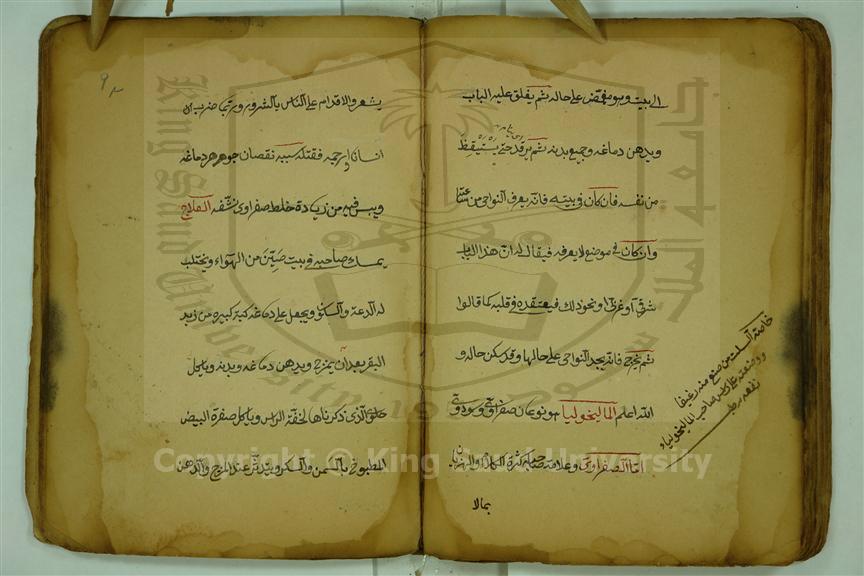 الى بيت وهو مغمض على حاله ثم يغلق عليه الباب
ويدهن دماغه وجميع بدنه ثم يرقد حتى يستيقظ
من نفسه فان كان في بيته فانه يعرف النواحي من ساعته
وان كان في موضع لا يعرفه فيقال له ان هذا الباب
شرقي أو غربي أو نحو ذلك فيعتقده في قلبه كما قالوا
ثم فانه يجد النواحي على حالها وقد سكن حاله و
الله اعلم الماليخوليا هو نوعان صفراوي وسوداوي
اما الصفراوي وعلامة صاحبه كثرة الكلام والهذيان
بمالا
خاصة
صاحب الماليخوليا
نفعه
٩
يشعر والاقدام على الناس بالشرور وربما ضرب
انسانا فقتله سببه نقصان جوهر دماغه
ويبس فيه من زيادة خلط صفراوي نشفه العلاج
يمسك صاحبه في بيت من الهواء ويجتلب
له الدعة والسكون ويجعل على دماغه كبة كبيرة من زبد
البقر بعد ان يمزج ويدهن دماغه وبدنه وياكل
الذي ذكرناها لخفة الراس وياكل صفرة البيض
المطبوخ بالسمن والسكر عند المزج والدهن
Copyright © King Saud University
King Saud University
جامعة الملك سعود